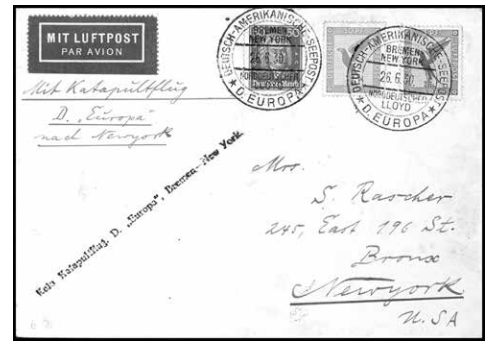 MIT LUFTPOST
PAR AVION
DEUTSCH-AMERIKANISCHE SEEPOST
BREMEN-
NEW YORK
26.6.30
NORDDEUTSCHER
LLOYD
* D. EUROPA *
DEUTSCH-AMERIKANISCHE SEEPOST
BREMEN-
NEW YORK
26.6.30
NORDDEUTSCHER
LLOYD
* D. EUROPA *
Mit Katapultflug
D. „Europa"
nach Newyork
Kein Katapultflug. D. „Europa", Bremen-New York.
Mrs.
S. Rascher
245, East 196 St.
Bronx
Newyork
U.SA